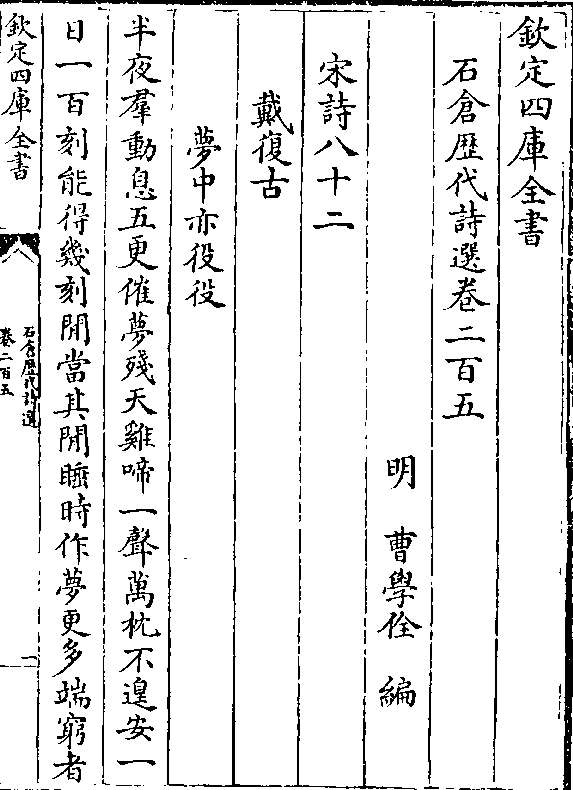 欽定四庫全書
石倉歴代詩選卷二百五
明 曹學佺 編
宋詩八十二
戴復古
夢中亦役役
半夜羣動息五更催夢殘天雞啼一聲萬枕不遑安一
日一百刻能得幾刻閒當其閒睡時作夢更多端窮者
欽定四庫全書
石倉歴代詩選
卷二百五
一